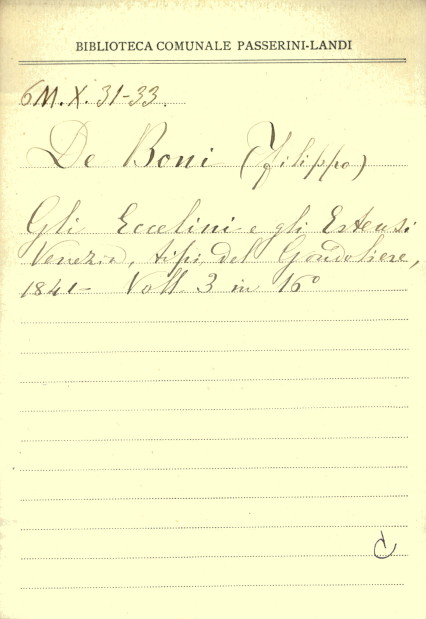 BIBLIOTECA COMUNALE PASSERINI-LANDI
6M.X. 31-33.
De Boni (Filippo)
Gli Eccelini e gli Estensi
Venezia, tipi del Gondoliere,
1841- Voll 3 in 16°